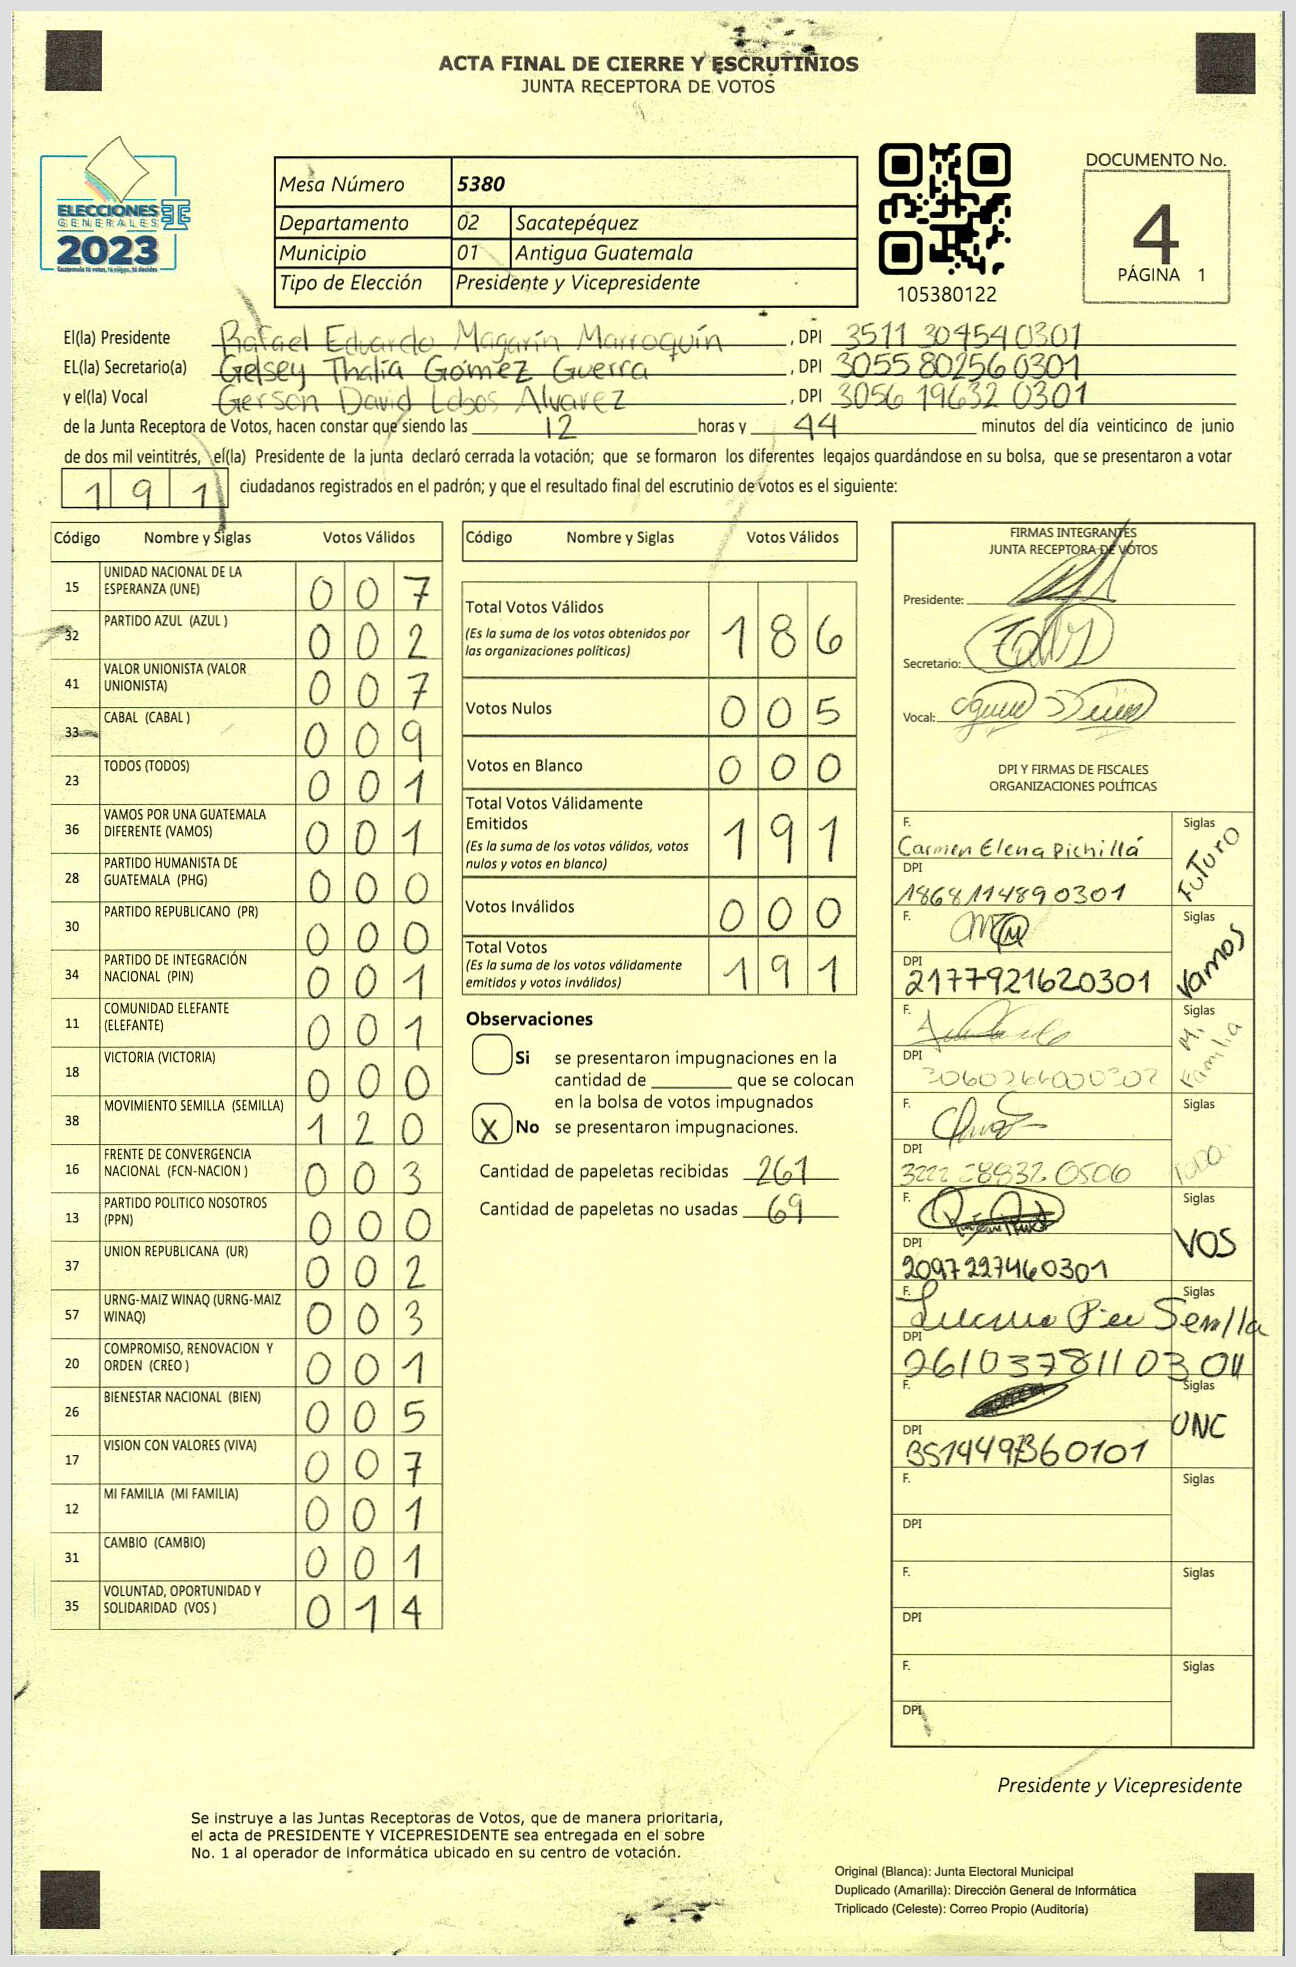 ACTA FINAL DE CIERRE Y ESCRUTINIOS
JUNTA RECEPTORA DE VOTOS
ELECCIONES
GENERALES
2023
Mesa Número 5380
Departamento 02 Sacatepéquez
Municipio 01 Antigua Guatemala
Tipo de Elección Presidente y Vicepresidente
105380122
DOCUMENTO No.
4
PÁGINA 1
El(la) Presidente Rafael Eduardo Magarín Marroquín , DPI 3511 30454 0301
EL(la) Secretario(a) Gelsey Thalia Gómez Guerra , DPI 3055 80256 0301
y el(la) Vocal Gerson David Lobos Alvarez , DPI 3056 19632 0301
de la Junta Receptora de Votos, hacen constar que siendo las 12 horas y 44 minutos del día veinticinco de junio
de dos mil veintitrés, el(la) Presidente de la junta declaró cerrada la votación; que se formaron los diferentes legajos guardándose en su bolsa, que se presentaron a votar
191 ciudadanos registrados en el padrón; y que el resultado final del escrutinio de votos es el siguiente:
Código Nombre y Siglas Votos Válidos
15 UNIDAD NACIONAL DE LA ESPERANZA (UNE) 0 0 7
32 PARTIDO AZUL (AZUL ) 0 0 2
41 VALOR UNIONISTA (VALOR UNIONISTA) 0 0 7
33 CABAL (CABAL ) 0 0 9
23 TODOS (TODOS) 0 0 1
36 VAMOS POR UNA GUATEMALA DIFERENTE (VAMOS) 0 0 1
28 PARTIDO HUMANISTA DE GUATEMALA (PHG) 0 0 0
30 PARTIDO REPUBLICANO (PR) 0 0 0
34 PARTIDO DE INTEGRACIÓN NACIONAL (PIN) 0 0 1
11 COMUNIDAD ELEFANTE (ELEFANTE) 0 0 1
18 VICTORIA (VICTORIA) 0 0 0
38 MOVIMIENTO SEMILLA (SEMILLA) 1 2 0
16 FRENTE DE CONVERGENCIA NACIONAL (FCN-NACION ) 0 0 3
13 PARTIDO POLITICO NOSOTROS (PPN) 0 0 0
37 UNION REPUBLICANA (UR) 0 0 2
57 URNG-MAIZ WINAQ (URNG-MAIZ WINAQ) 0 0 3
20 COMPROMISO, RENOVACION Y ORDEN (CREO ) 0 0 1
26 BIENESTAR NACIONAL (BIEN) 0 0 5
17 VISION CON VALORES (VIVA) 0 0 7
12 MI FAMILIA (MI FAMILIA) 0 0 1
31 CAMBIO (CAMBIO) 0 0 1
35 VOLUNTAD, OPORTUNIDAD Y SOLIDARIDAD (VOS ) 0 1 4
Código Nombre y Siglas Votos Válidos
Total Votos Válidos 1 8 6
(Es la suma de los votos obtenidos por
las organizaciones políticas)
Votos Nulos 0 0 5
Votos en Blanco 0 0 0
Total Votos Válidamente
Emitidos 1 9 1
(Es la suma de los votos válidos, votos
nulos y votos en blanco)
Votos Inválidos 0 0 0
Total Votos 1 9 1
(Es la suma de los votos válidamente
emitidos y votos inválidos)
Observaciones
Si se presentaron impugnaciones en la
cantidad de ________ que se colocan
en la bolsa de votos impugnados
X No se presentaron impugnaciones.
Cantidad de papeletas recibidas 261
Cantidad de papeletas no usadas 69
FIRMAS INTEGRANTES
JUNTA RECEPTORA DE VOTOS
Presidente:
Secretario:
Vocal:
DPI Y FIRMAS DE FISCALES
ORGANIZACIONES POLÍTICAS
F. Siglas
Carmen Elena Pichillá FUTURO
DPI
1868114890301
F. Siglas
Vamos
DPI
2177921620301
F. Siglas
Mi Familia
DPI
F. Siglas
DPI
F. Siglas
VOS
DPI
2097227460301
F. Siglas
Semilla
DPI
F. Siglas
UNC
DPI
F. Siglas
DPI
F. Siglas
DPI
F. Siglas
DPI
Presidente y Vicepresidente
Se instruye a las Juntas Receptoras de Votos, que de manera prioritaria,
el acta de PRESIDENTE Y VICEPRESIDENTE sea entregada en el sobre
No. 1 al operador de informática ubicado en su centro de votación.
Original (Blanca): Junta Electoral Municipal
Duplicado (Amarilla): Dirección General de Informática
Triplicado (Celeste): Correo Propio (Auditoría)